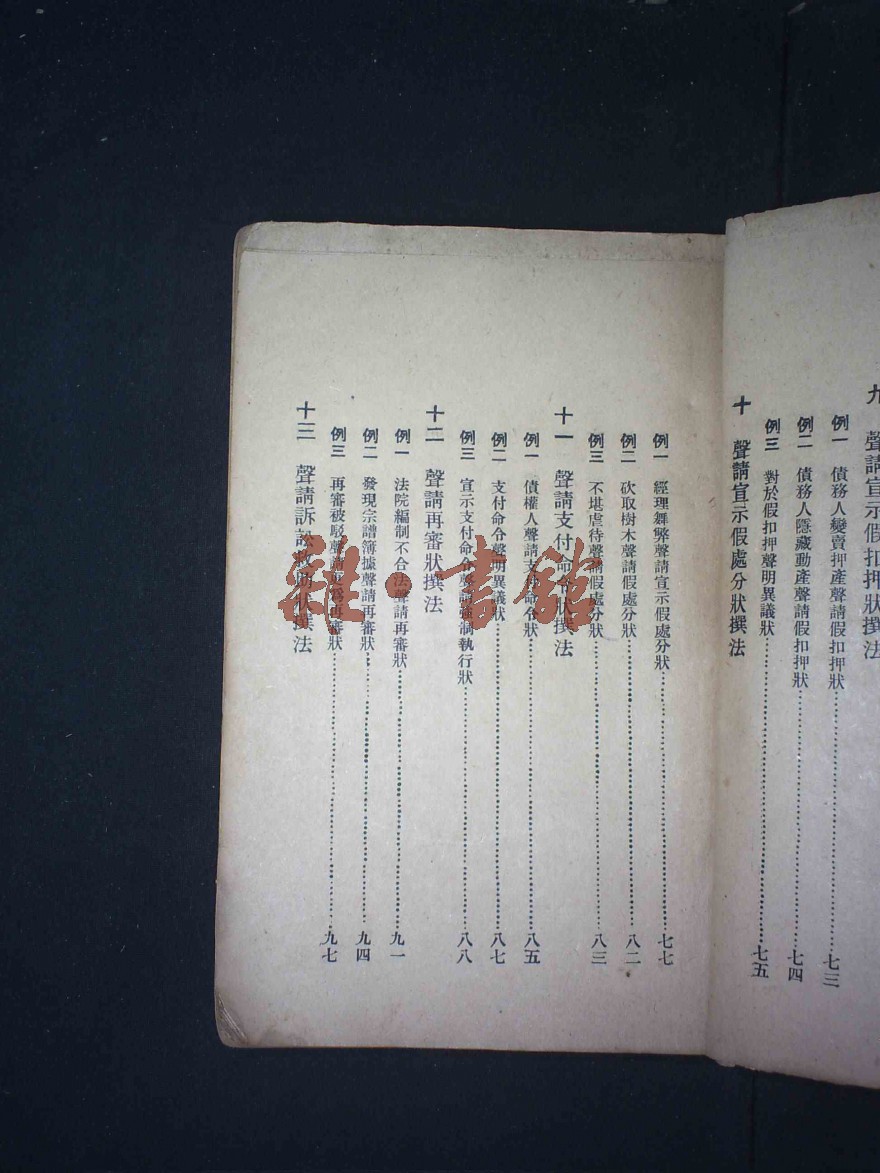 九　聲請宣示假扣押狀撰法
例一　債務人變賣押產聲請假扣押狀……七三
例二　債務人隱藏動產聲請假扣押狀……七四
例三　對於假扣押聲明異議狀……七五
十　聲請宣示假處分狀撰法
例一　經理舞弊聲請宣示假處分狀……七七
例二　砍取樹木聲請假處分狀……八二
例三　不堪虐待聲請假處分狀……八三
十一　聲請支付命令狀撰法
例一　債權人聲請支付命令狀……八五
例二　支付命令聲明異議狀……八七
例三　宣示支付命令聲請強制執行狀……八八
十二　聲請再審狀撰法
例一　法院編制不合法聲請再審狀……九一
例二　發現宗譜簿據聲請再審狀……九四
例三　再審被駁聲請更為再審狀……九七
十三　聲請訴訟救助狀撰法
雜·書館